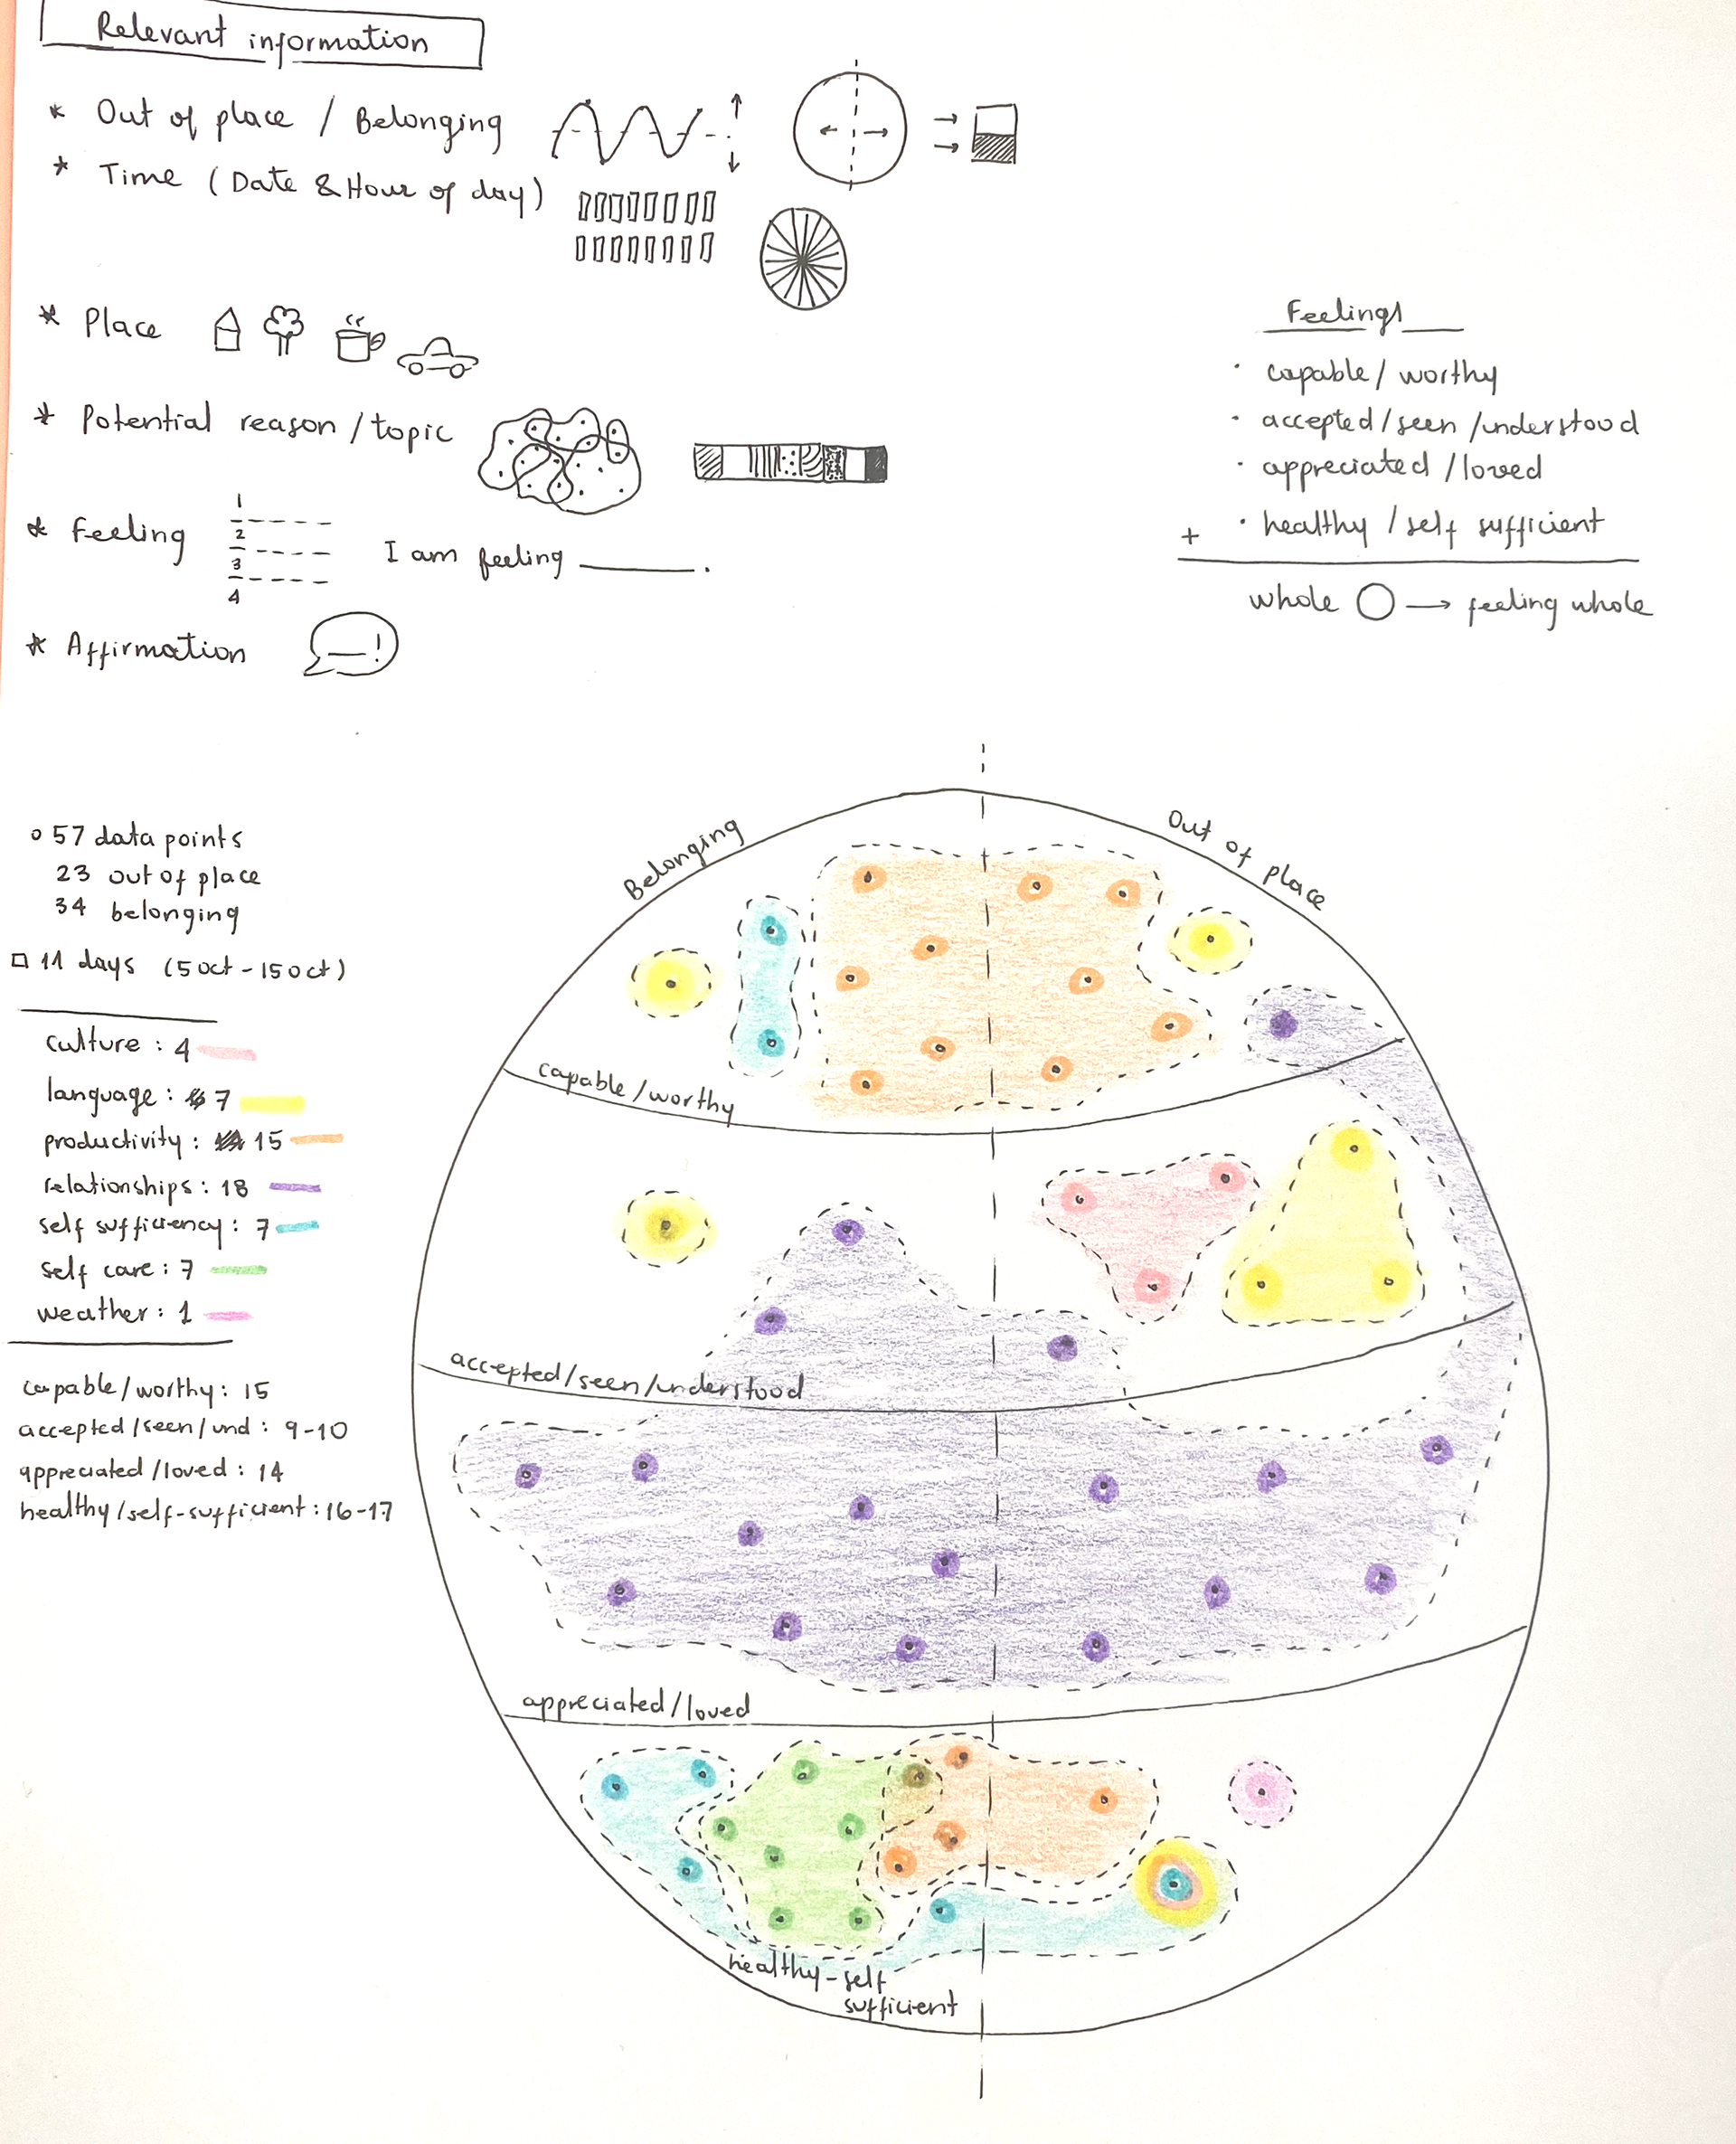 Relevant information
* Out of place / Belonging
* Time (Date & Hour of day)
* Place
* Potential reason / topic
* Feeling
1
2
3
4
I am feeling ______.
* Affirmation
Feelings
· capable / worthy
· accepted / seen / understood
· appreciated / loved
+ · healthy / self sufficient
whole ○ → feeling whole
57 data points
23 out of place
34 belonging
11 days (5 oct - 15 oct)
culture : 4
language : 7
productivity : 15
relationships : 18
self sufficiency : 7
self care : 7
weather : 1
capable / worthy : 15
accepted / seen / und : 9-10
appreciated / loved : 14
healthy / self-sufficient : 16-17
Belonging
Out of place
capable / worthy
accepted / seen / understood
appreciated / loved
healthy - self
sufficient